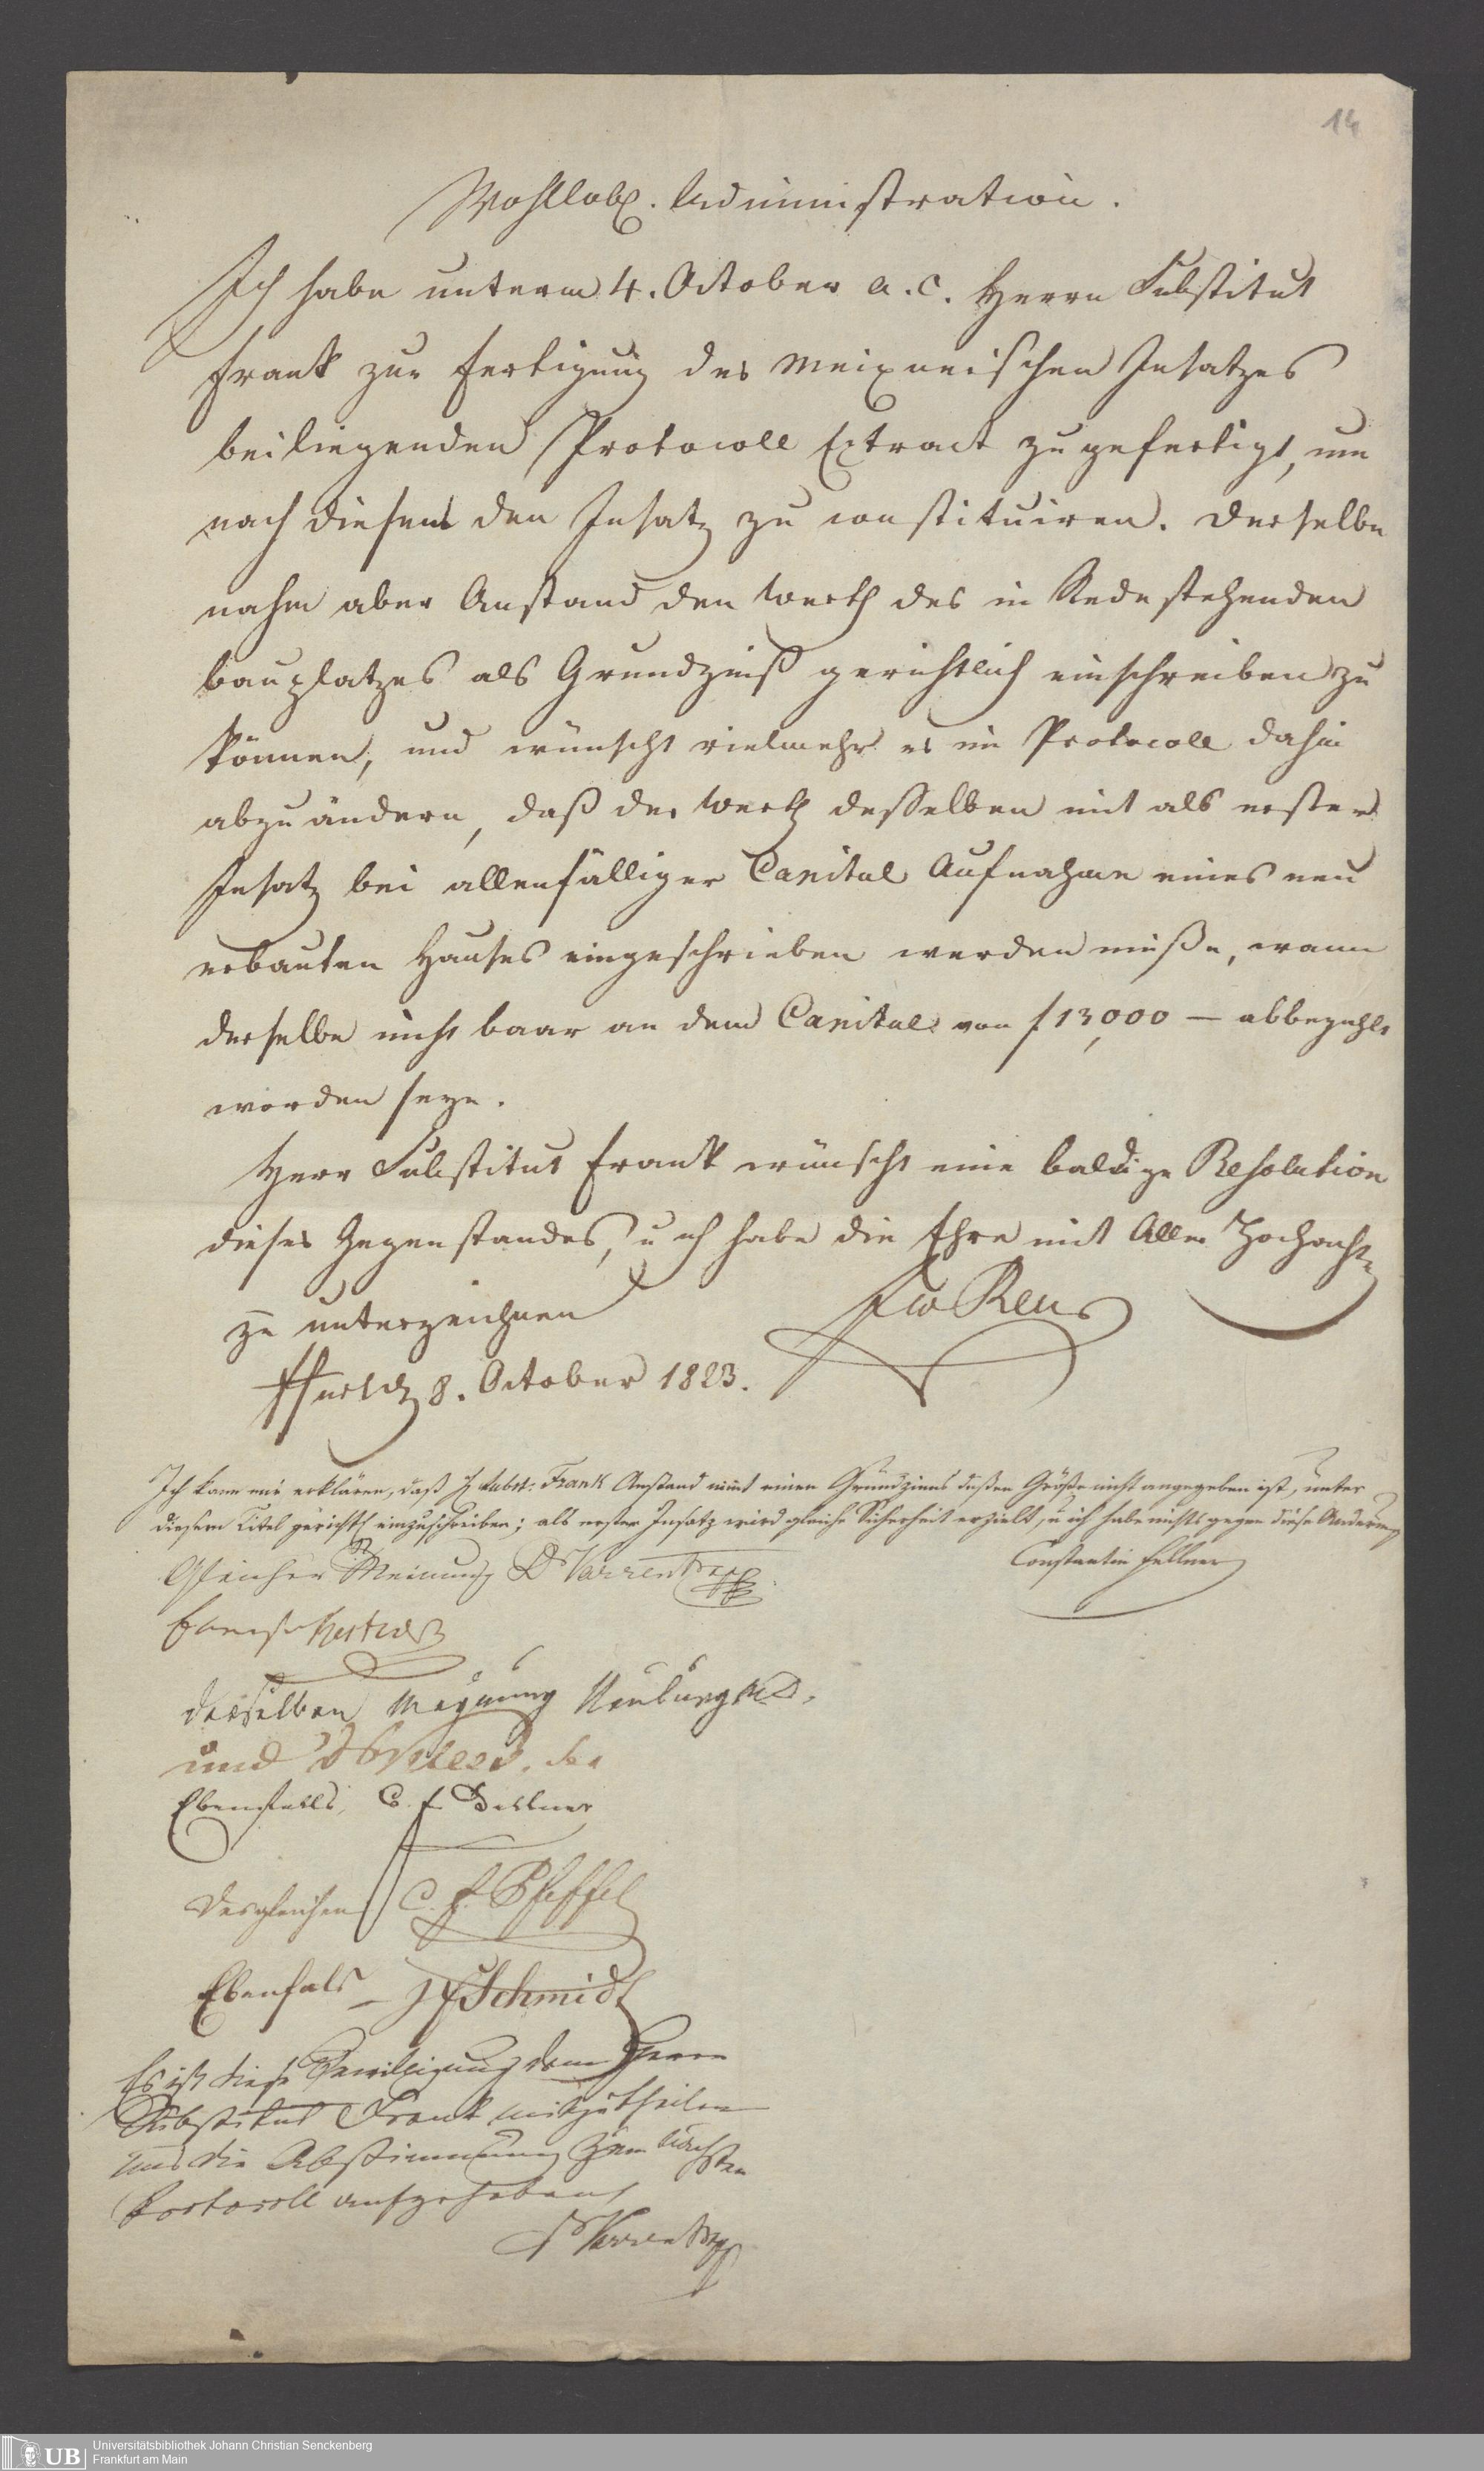 14
Wohllobl. Administration.
Ich habe unterm 4. October a. c. Herrn Substitut
Frank zur Fertigung des Meixnerischen Insatzes
beiliegenden Protocoll Extract zugefertigt, um
nach diesem den Insatz zu constituiren. Derselbe
nahm aber Anstand den Werth des in Rede stehenden
Bauplatzes als Grundzinß gerichtlich einschreiben zu
können, und wünscht vielmehr es im Protocoll dahin
abzuändern, daß der Werth desselben mit als erster
Insatz bei allenfalliger Capital Aufnahme eines neu
erbauten Hauses eingeschrieben werden müße, wann
derselbe nicht baar an dem Capital von f 13,000 — abbezahlt
worden seye.
Herr Substitut Frank wünscht eine baldige Resolution
dieses Gegenstandes, u ich habe die Ehre mit Aller Hochacht
zu unterzeichnen
8. October 1823.
Ich kann mir erklären, daß H Subst. Frank Anstand nimt einen Grundzinns deßen Größe nicht angegeben ist, unter
diesem Titel gerichtl einzuschreiben; als erster Insatz wird gleiche Sicherheit erzielt, u ich habe nichts gegen diese Aenderung
Constantin Fellner
Gleicher Meinung Dr Varrentrapp
derselben Meynung Neuburg MD.
und
Ebenfalls, C. F.
desgleichen C. F. Pfeffel
Ebenfals – J F Schmidt
Es ist diese Bewilligung dem Herrn
Substitut Frank mitzutheilen
und die Abstimmung zum nächsten
Protocoll aufzuheben
Dr Varrentrapp
UB
Universitätsbibliothek Johann Christian Senckenberg
Frankfurt am Main